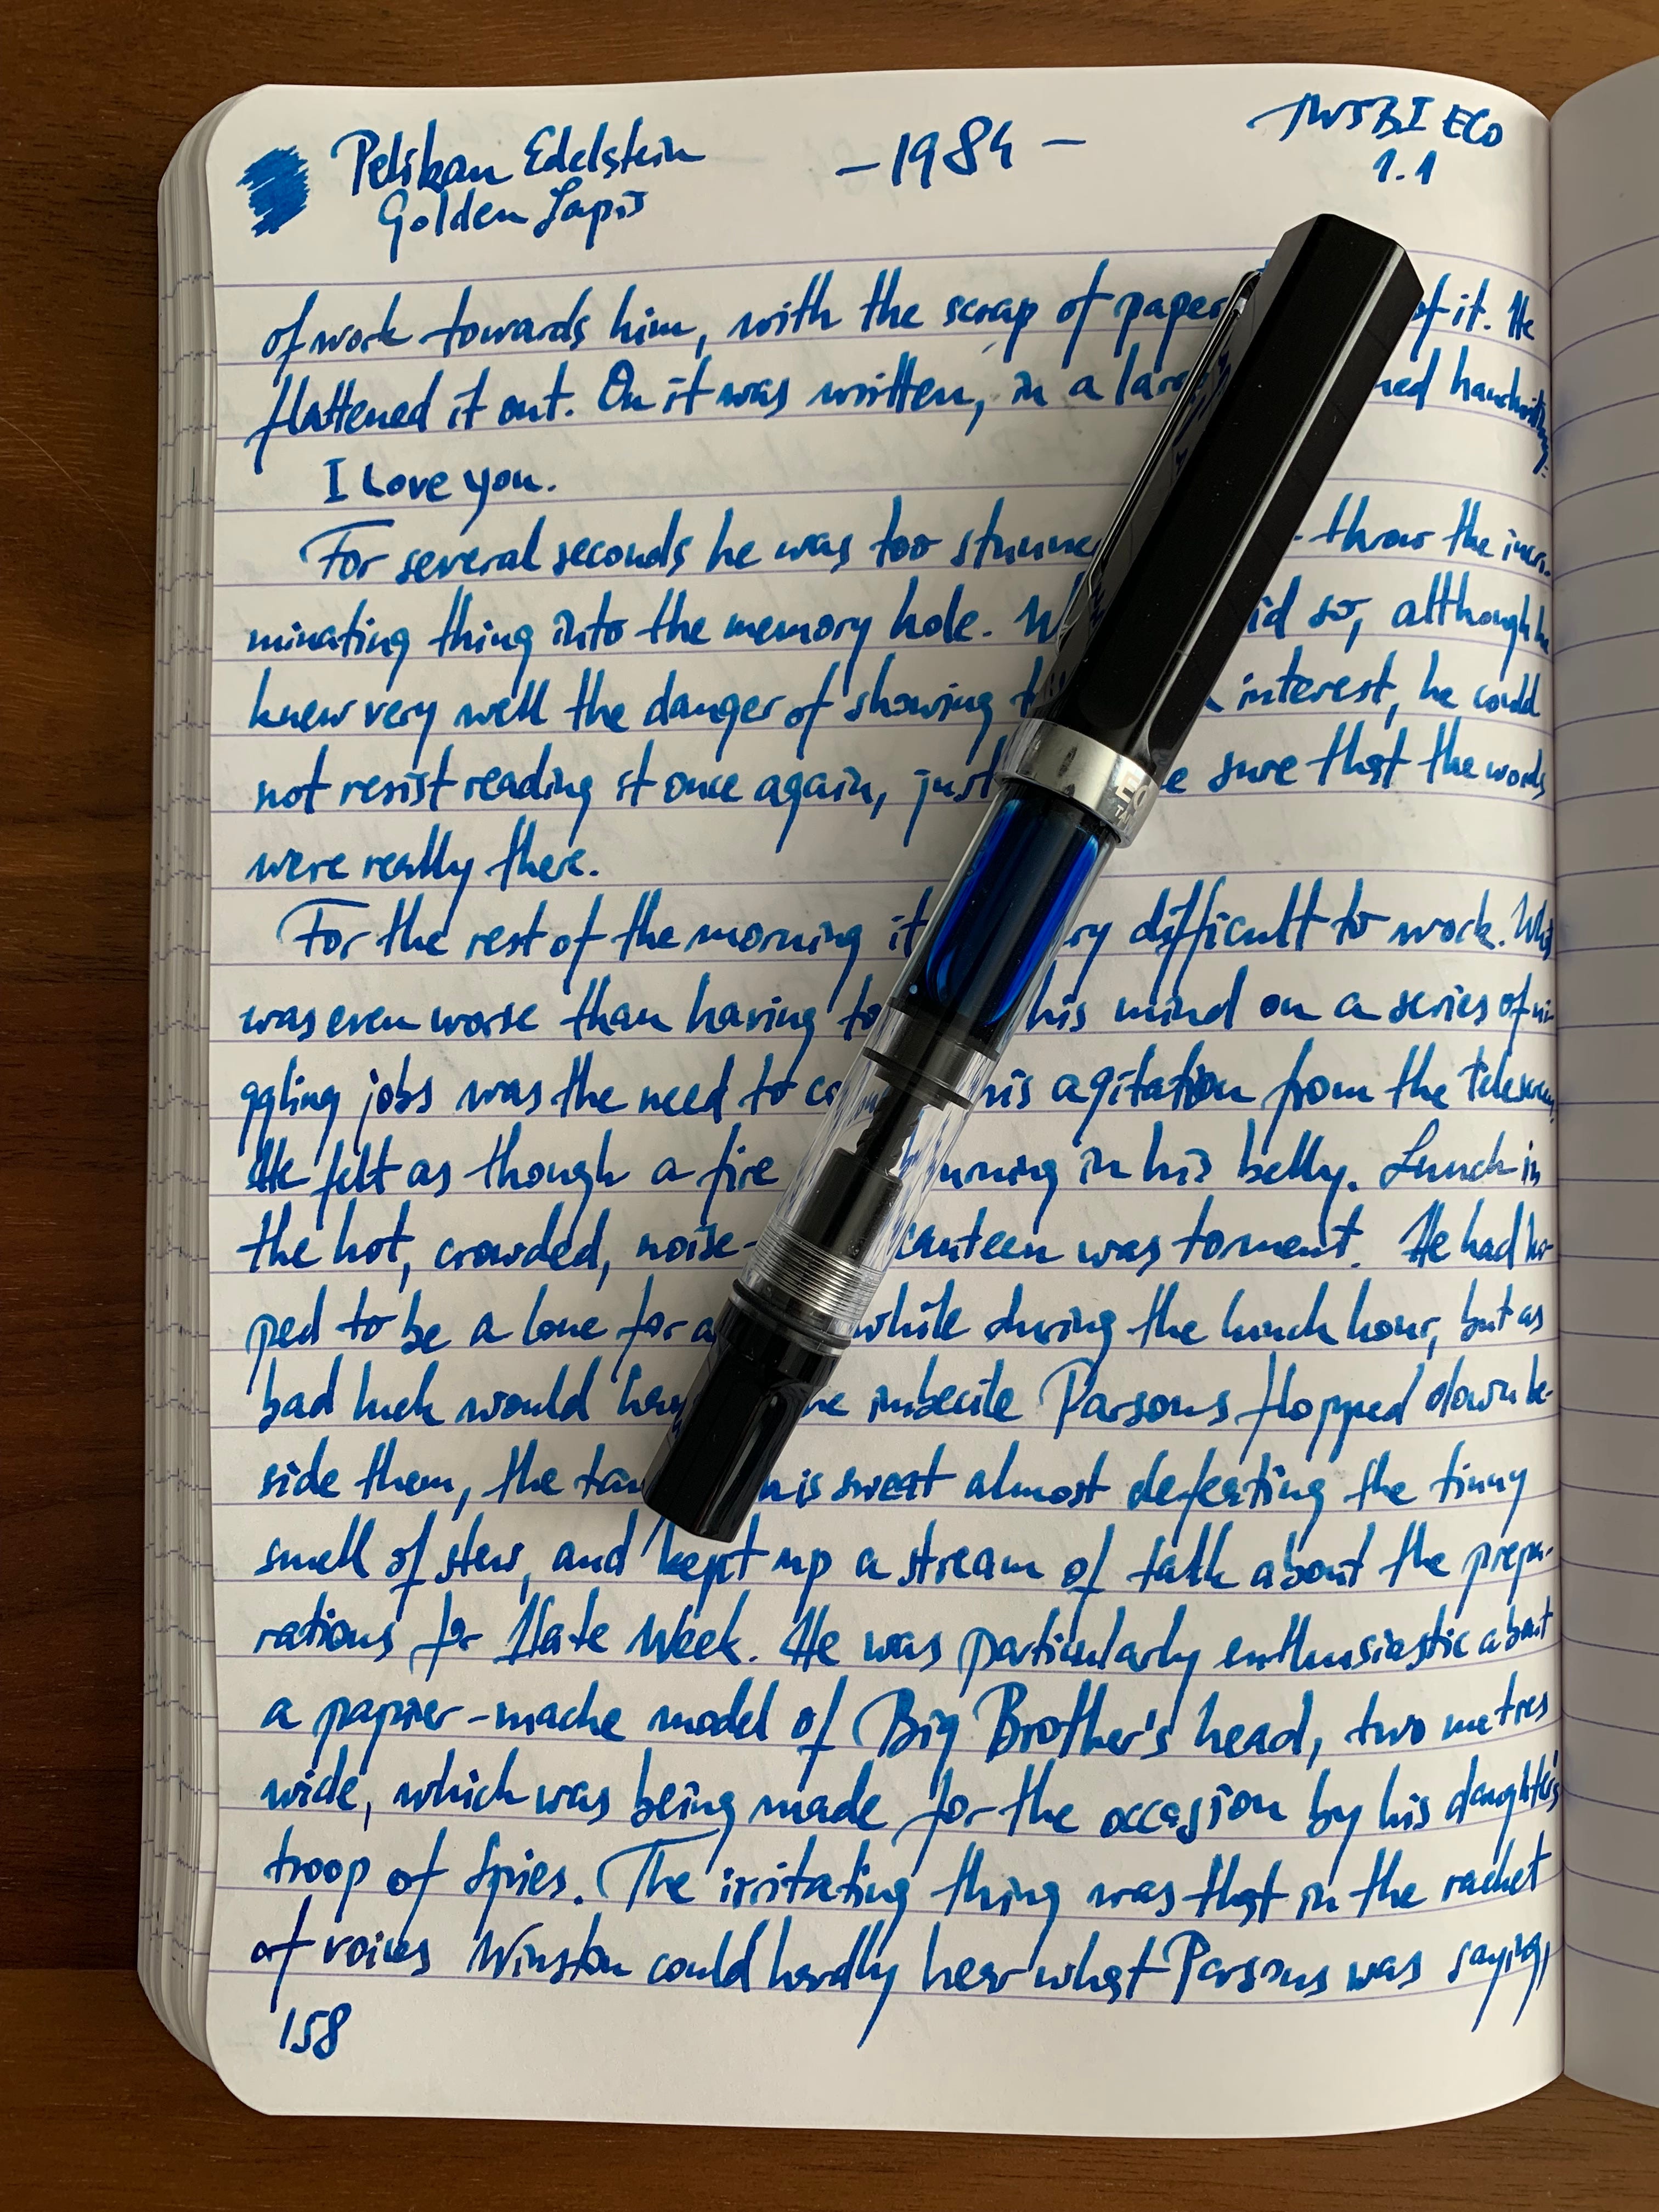 Pelikan Edelstein
Golden Lapis
- 1984 -
TWSBI ECO
1.1
of work towards him, with the scrap of paper of it. He
flattened it out. On it was written, in a handwriting:
I love you.
For several seconds he was too throw the incri-
minating thing into the memory hole. so, although he
knew very well the danger of showing interest, he could
not resist reading it once again, just sure that the words
were really there.
For the rest of the morning it difficult to work. What
was even worse than having to his mind on a series of ni-
ggling jobs was the need to his agitation from the telescreen.
He felt as though a fire in his belly. Lunch in
the hot, crowded, noise- canteen was torment. He had ho-
ped to be a lone for a while during the lunch hour, but as
bad luck would imbecile Parsons flopped down be-
side them, the his sweat almost defeating the tinny
smell of stew, and kept up a stream of talk about the prepa-
rations for Hate Week. He was particularly enthusiastic about
a papier-mache model of Big Brother's head, two metres
wide, which was being made for the occasion by his daughter's
troop of Spies. The irritating thing was that in the racket
of voices Winston could hardly hear what Parsons was saying,
158